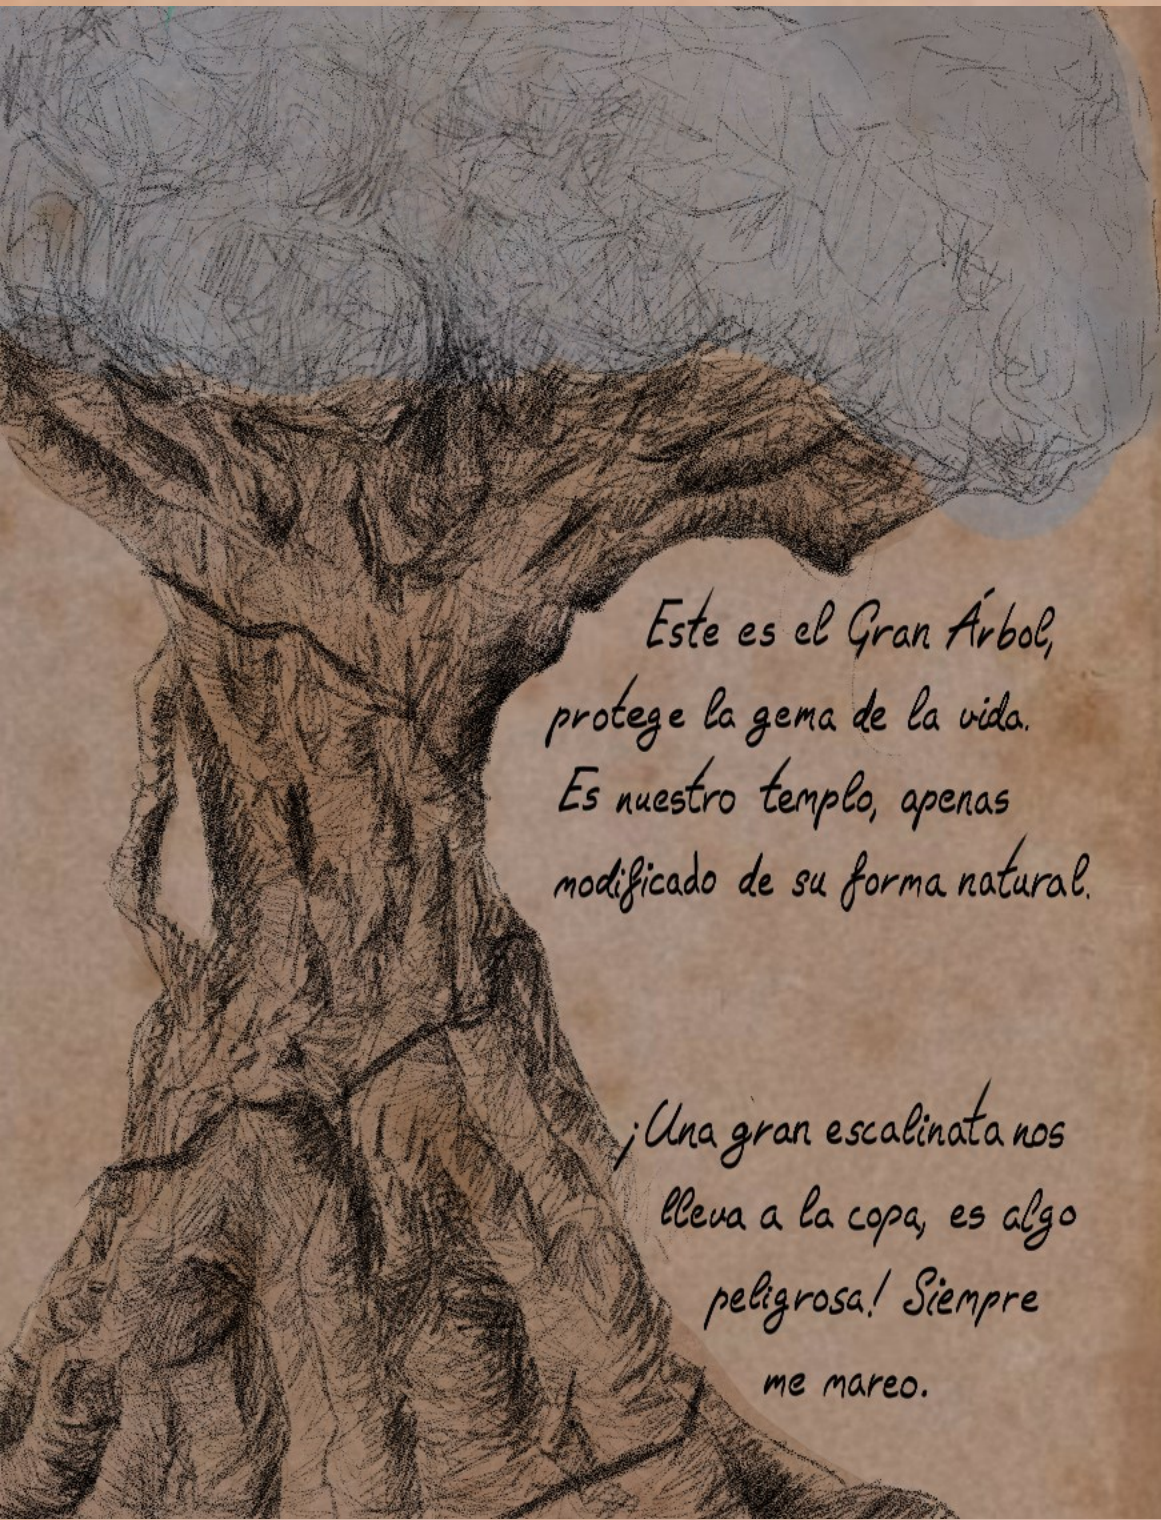 Este es el Gran Árbol,
protege la gema de la vida.
Es nuestro templo, apenas
modificado de su forma natural.
¡Una gran escalinata nos
lleva a la copa, es algo
peligrosa! Siempre
me mareo.